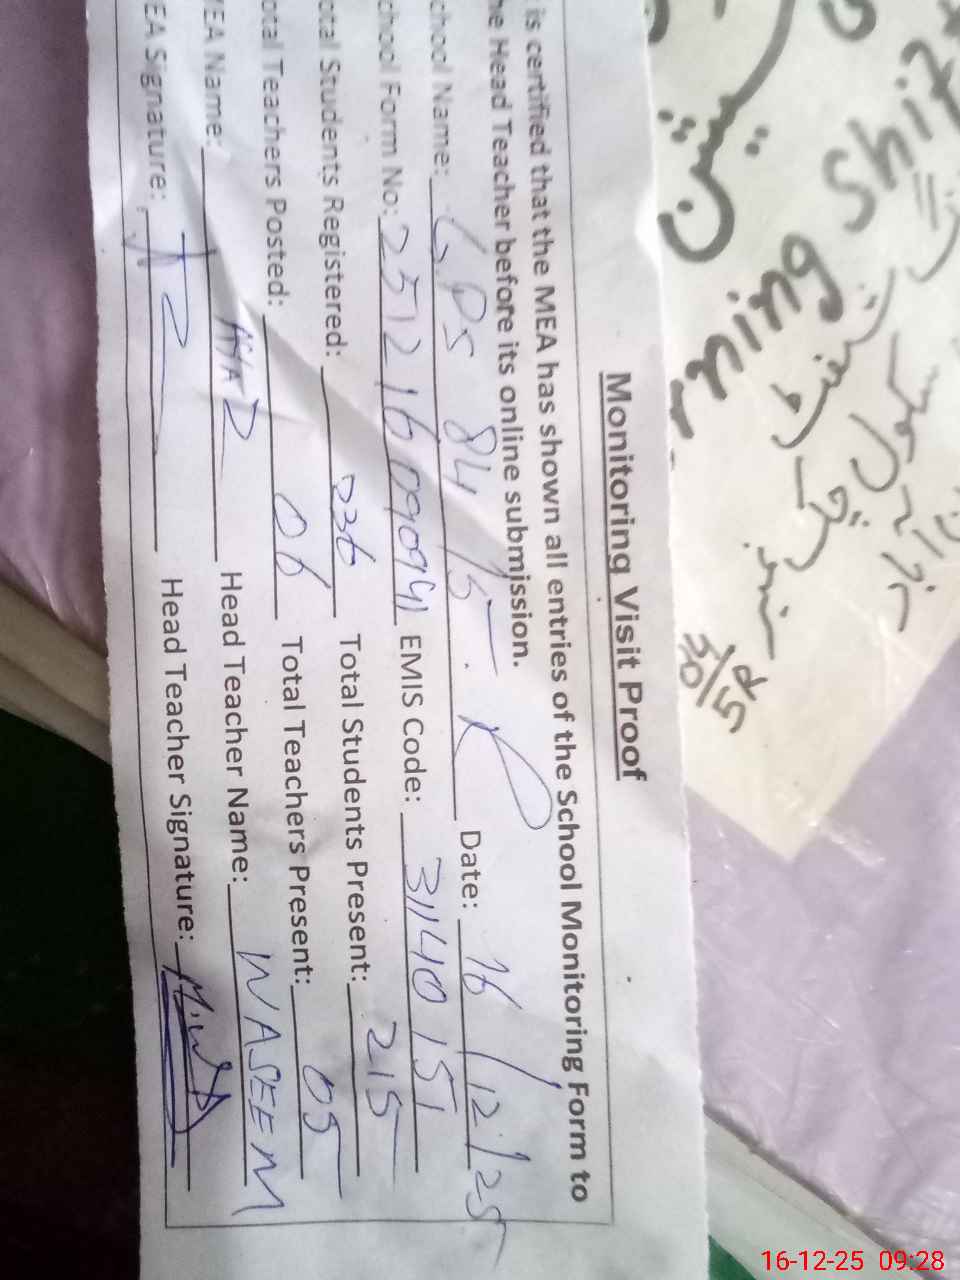 Monitoring Visit Proof
is certified that the MEA has shown all entries of the School Monitoring Form to
he Head Teacher before its online submission.
chool Name: GPS 84/5-R Date: 16/12/25
chool Form No: 251216090941 EMIS Code: 31140151
otal Students Registered: 236 Total Students Present: 215
otal Teachers Posted: 06 Total Teachers Present: 05
EA Name: Head Teacher Name: WASEEM
EA Signature: Head Teacher Signature:
rning Shift
شفٹ
سکول چک نمبر
84/5R
16-12-25 09:28